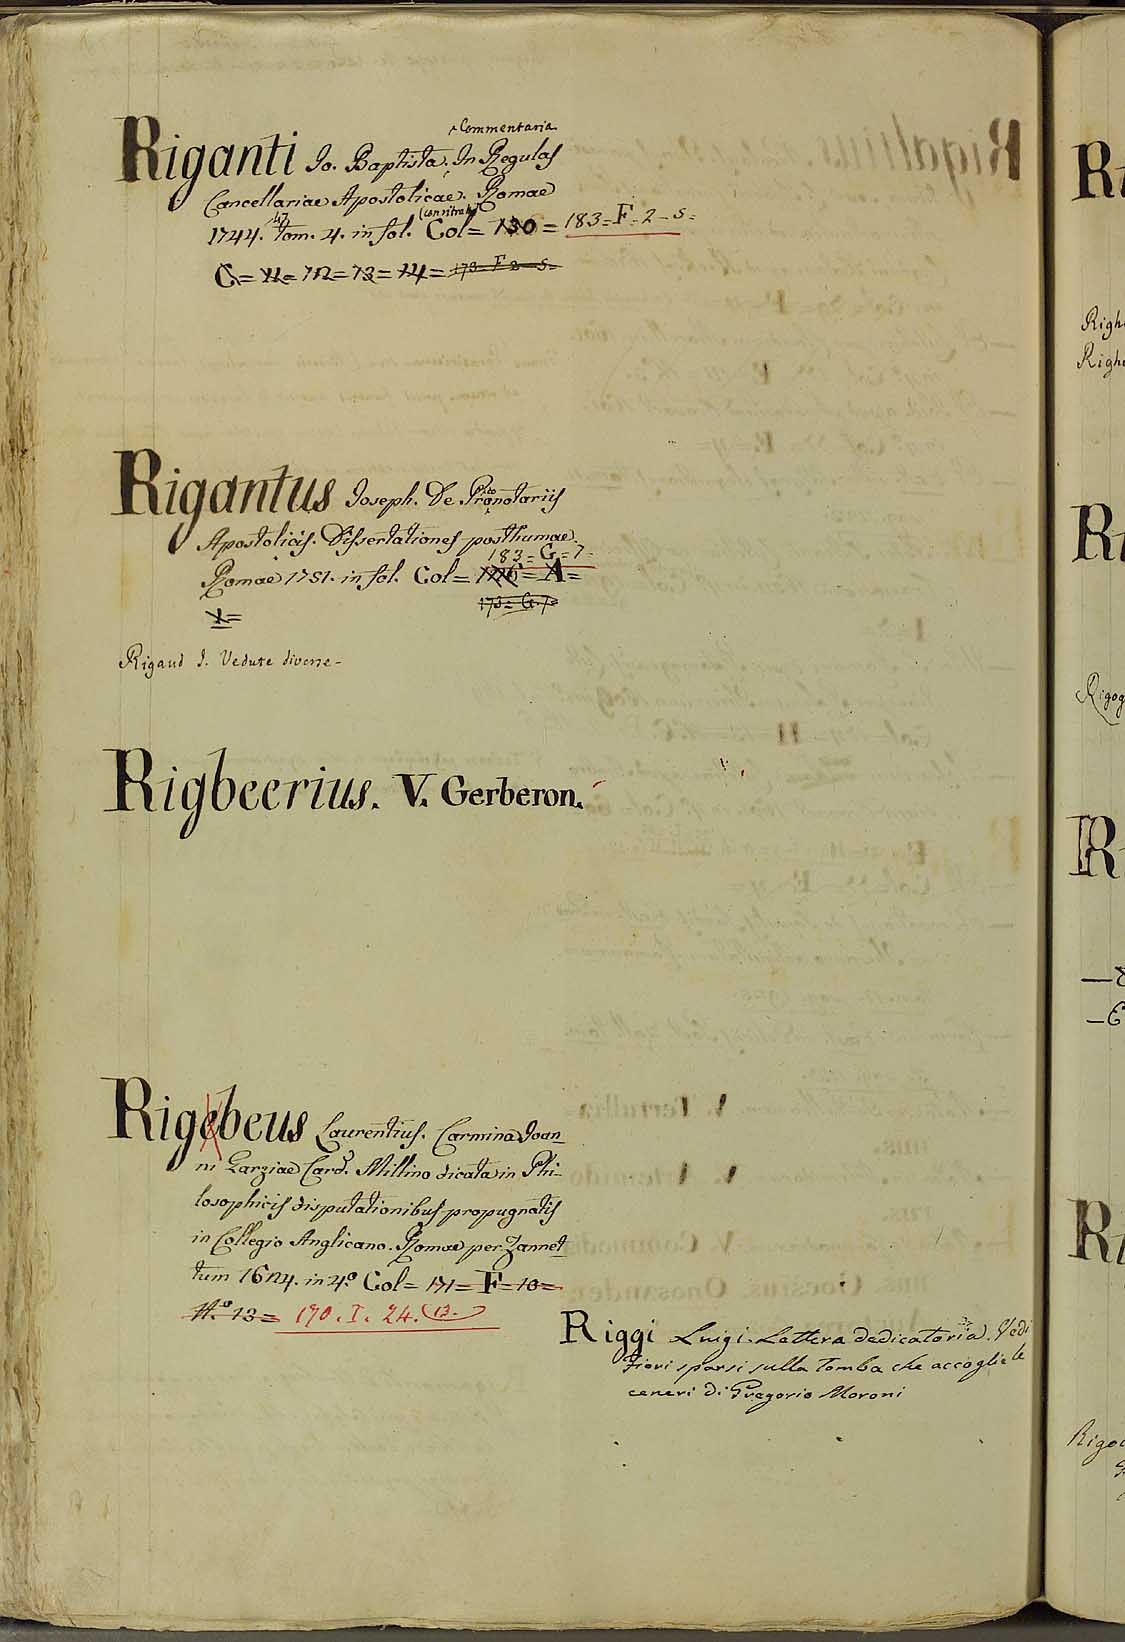 Commentaria
Riganti Io. Baptista. In Regulas
Cancellariae Apostolicae. Romae
1744. 47 tom. 4. in fol. Col = 130 = 183 = F = 2 - 5 =
C = 11 = 12 = 13 = 14 = 173 = F 2 - 5 =
Rigantus Joseph. De Pronotariis
Apostolicis. Dissertationes posthumae.
183 = G = 7 -
Romae 1751. in fol. Col = = A =
173 = G. 7 =
Rigaud J. Vedute diverse -
Rigbeerius. V. Gerberon.
Rigebeus Laurentius. Carmina Ioan
ni Garziae Card. Millino dicata in Phi
losophicis disputationibus propugnatis
in Collegio Anglicano. Romae per Zannet
tum 1624. in 4.º Col = 171 = F = 10 =
N.º 13 = 170. I. 24. (13.)
Riggi Luigi. Lettera dedicatoria. Vedi
Fiori sparsi sulla tomba che accoglie le
ceneri di Gregorio Moroni